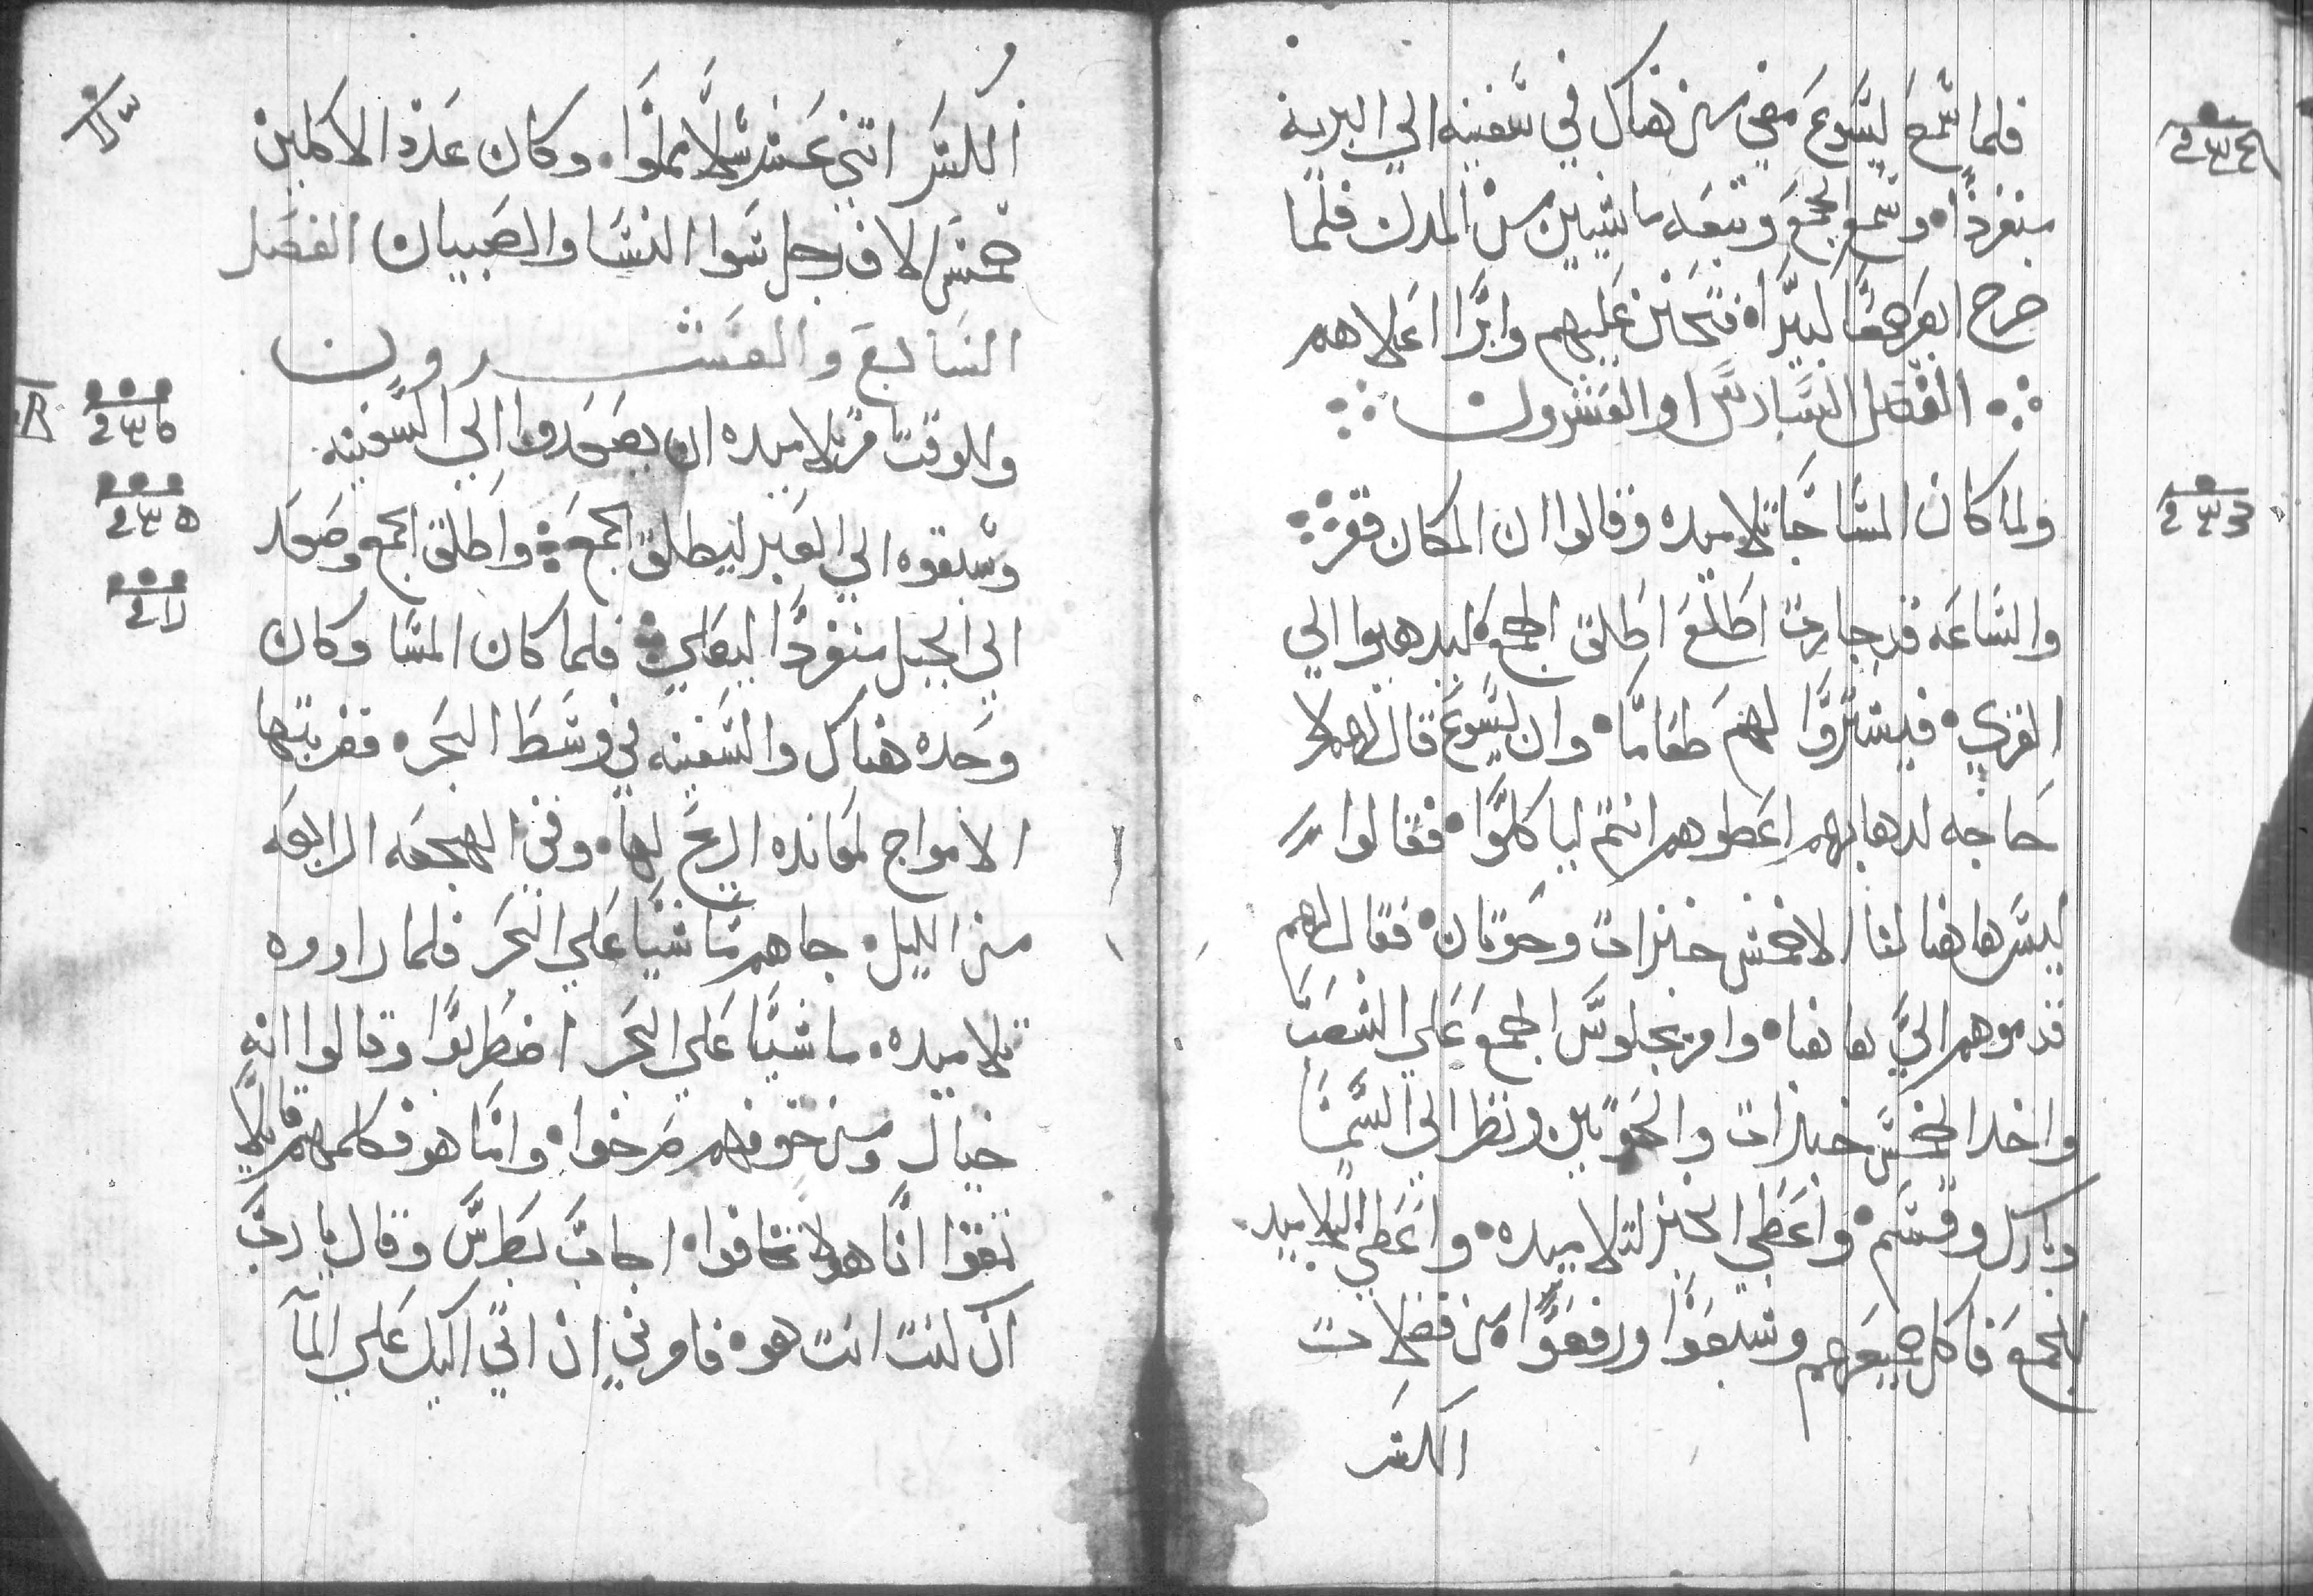 فلما سمع يسوع مضي من هناك في سفينه الي البريه
منفردًا وسمع الجمع وتبعه ماشيين من المدن فلما
خرج ابصر جمعًا كبيرًا فتحنن عليهم وابرا اعلاهم
الفصل السادس والعشرون
ولما كان المسا جا تلاميده وقالوا ان المكان قفر
والساعه قد جازت اطلع اطلق الجمع ليدهبوا الي
القري فيشتروا لهم طعامًا وان يسوع قال لهم لا
حاجه لدهابهم اعطوهم انتم لياكلوا فقالوا
ليس هاهنا لنا الا خمس خبزات وحوتان فقال لهم
قدموهم الي هاهنا وامر بجلوس الجمع علي العشب
واخد الخمس خبزات والحوتين ونظر الي السما
وبارك وقسم واعطي الخبز لتلاميده واعطي التلاميد
للجمع فاكل جميعهم وشبعوا ورفعوا من فضلات
الكسر
الكسر اتني عشر سلا مملوا وكان عدد الاكلين
خمسه الاف رجل سوا النسا والصبيان الفصل
السابع والعشرون
وللوقت امر تلاميده ان يصعدوا الي السفينه
وسبقوه الي العبر ليطلق الجمع واطلق الجمع وصعد
الي الجبل منفردًا ليصلي فلما كان المسا وكان
وحده هناك والسفينه في وسط البحر فضربتها
الامواج لمعانده الريح لها وفي الهجعه الرابعه
من الليل جاهم ماشيًا علي البحر فلما راووه
تلاميده ماشيًا علي البحر اضطربوا وقالوا انه
خيال ومن خوفهم صرخوا وانما هو فكلمهم قايلا
تقوا انا هو لا تخافوا اجاب بطرس وقال يا رب
ان كنت انت هو فامرني ان اتي اليك علي المآ